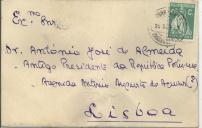 Ex.mo Snr.
Dr. António José de Almeida
Antigo Presidente da Republica Portuguesa
Avenida António Augusto de Aguiar
Lisboa